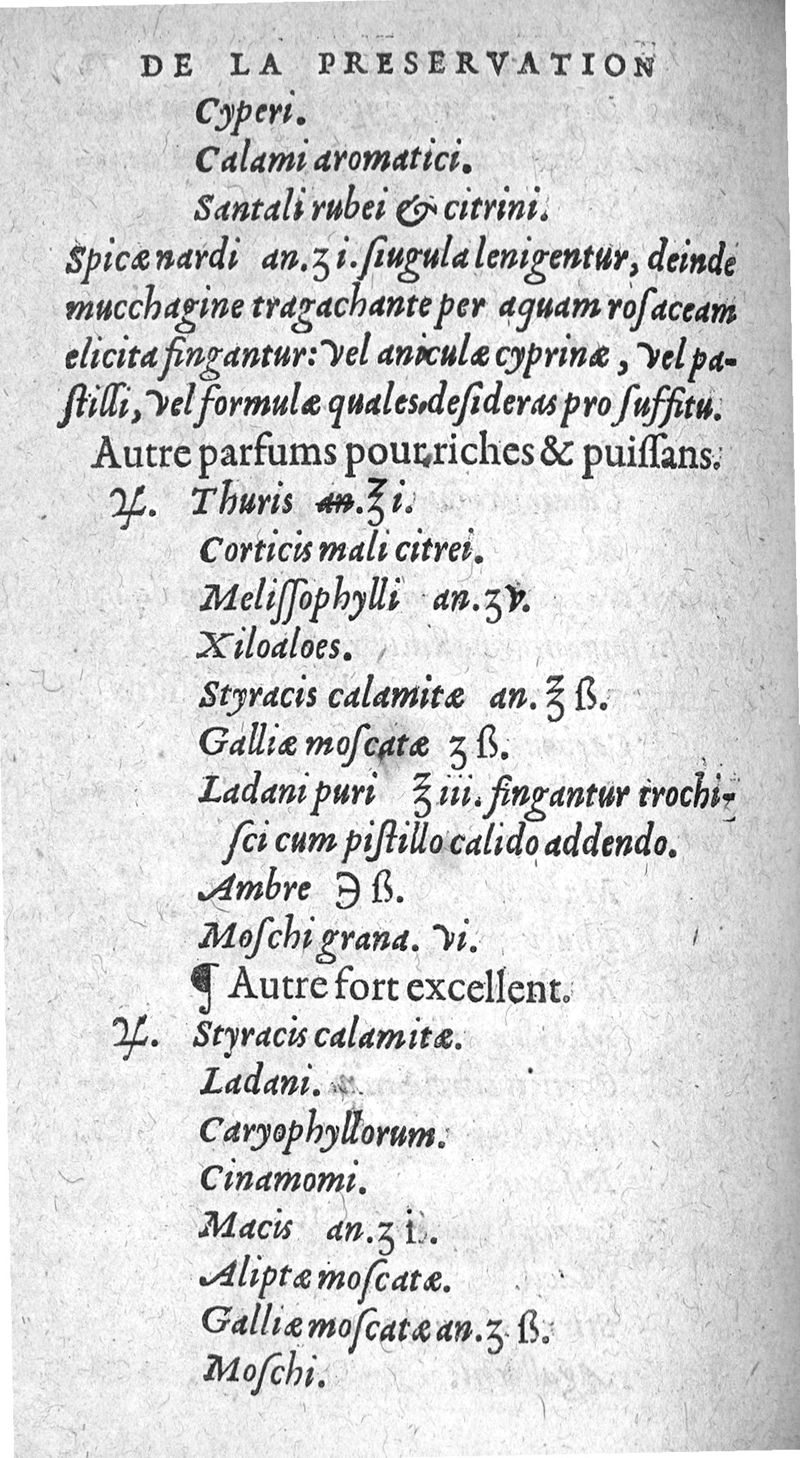 DE LA PRESERVATION
Cyperi.
Calami aromatici.
Santali rubei & citrini.
Spicæ nardi an.ʒ i. ſiugula lenigentur, deinde
mucchagine tragachante per aquam roſaceam
elicita fingantur: vel aniculæ cyprinæ, vel pa-
ſtilli, vel formulæ quales deſideras pro ſuffitu.
Autre parfums pour riches & puiſſans.
♃. Thuris an.℥ i.
Corticis mali citrei.
Meliſſophylli an.ʒ v.
Xiloaloes.
Styracis calamitæ an. ℥ ß.
Galliæ moſcatæ ʒ ß.
Ladani puri ℥ iii. fingantur trochi-
ſci cum piſtillo calido addendo.
Ambre ℈ ß.
Moſchi grana. vi.
¶ Autre fort excellent.
♃. Styracis calamitæ.
Ladani.
Caryophyllorum.
Cinamomi.
Macis an.ʒ i.
Aliptæ moſcatæ.
Galliæ moſcatæ an.ʒ ß.
Moſchi.